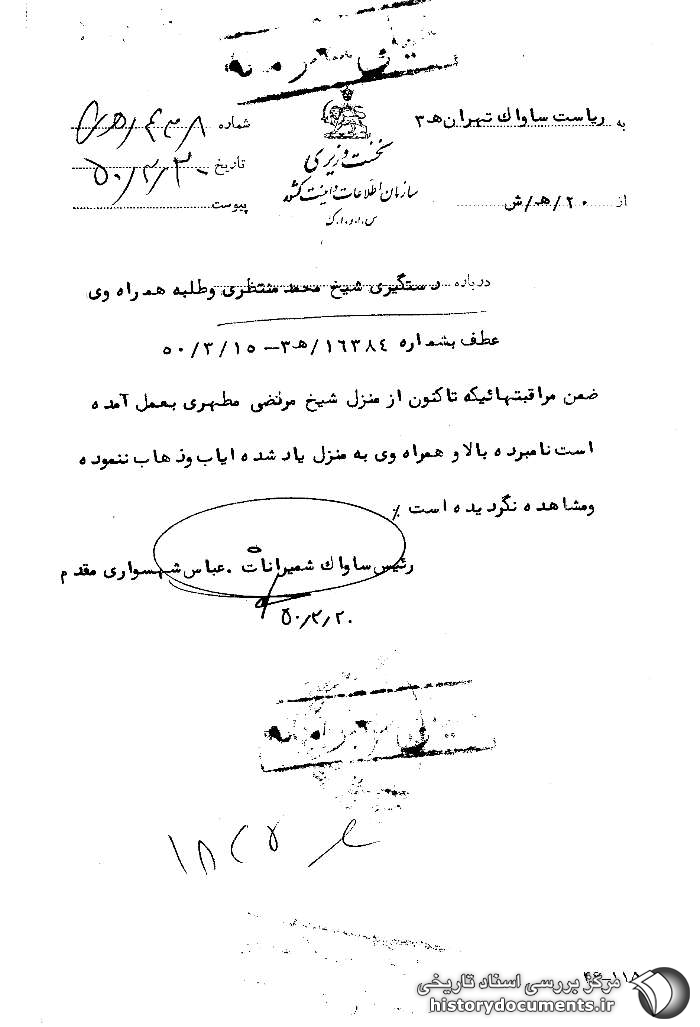 خیلی محرمانه
به ریاست ساواک تهران ه‍ ۳
شماره
از ۲۰/ه‍/ش
تاریخ ۵۰/۳/۲۰
پیوست
نخست وزیری
سازمان اطلاعات و امنیت کشور
س.ا.و.ا.ک
درباره دستگیری شیخ محمد منتظری وطلبه همراه وی
عطف بشماره ۱۶۳۸۴/ه‍۳–۵۰/۳/۱۵
ضمن مراقبتهائیکه تاکنون از منزل شیخ مرتضی مطهری بعمل آمده
است نامبرده بالا و همراه وی به منزل یاد شده ایاب وذهاب ننموده
ومشاهده نگردیده است ٪
رئیس ساواک شمیرانات . عباس شهسواری مقدم
۵۰/۳/۲۰
خیلی محرمانه
مرکز بررسی اسناد تاریخی
historydocuments.ir